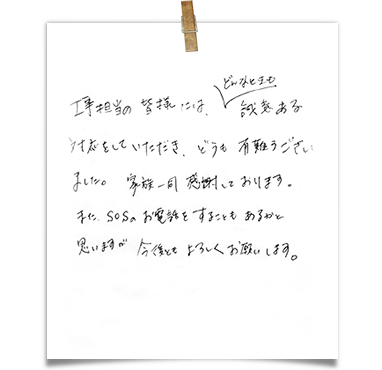 どんなときも
工事担当の皆様には、誠意ある
対応をしていただき、どうも有難うござい
ました。家族一同感謝しております。
また、SOSのお電話をすることもあるかと
思いますが今後ともよろしくお願いします。